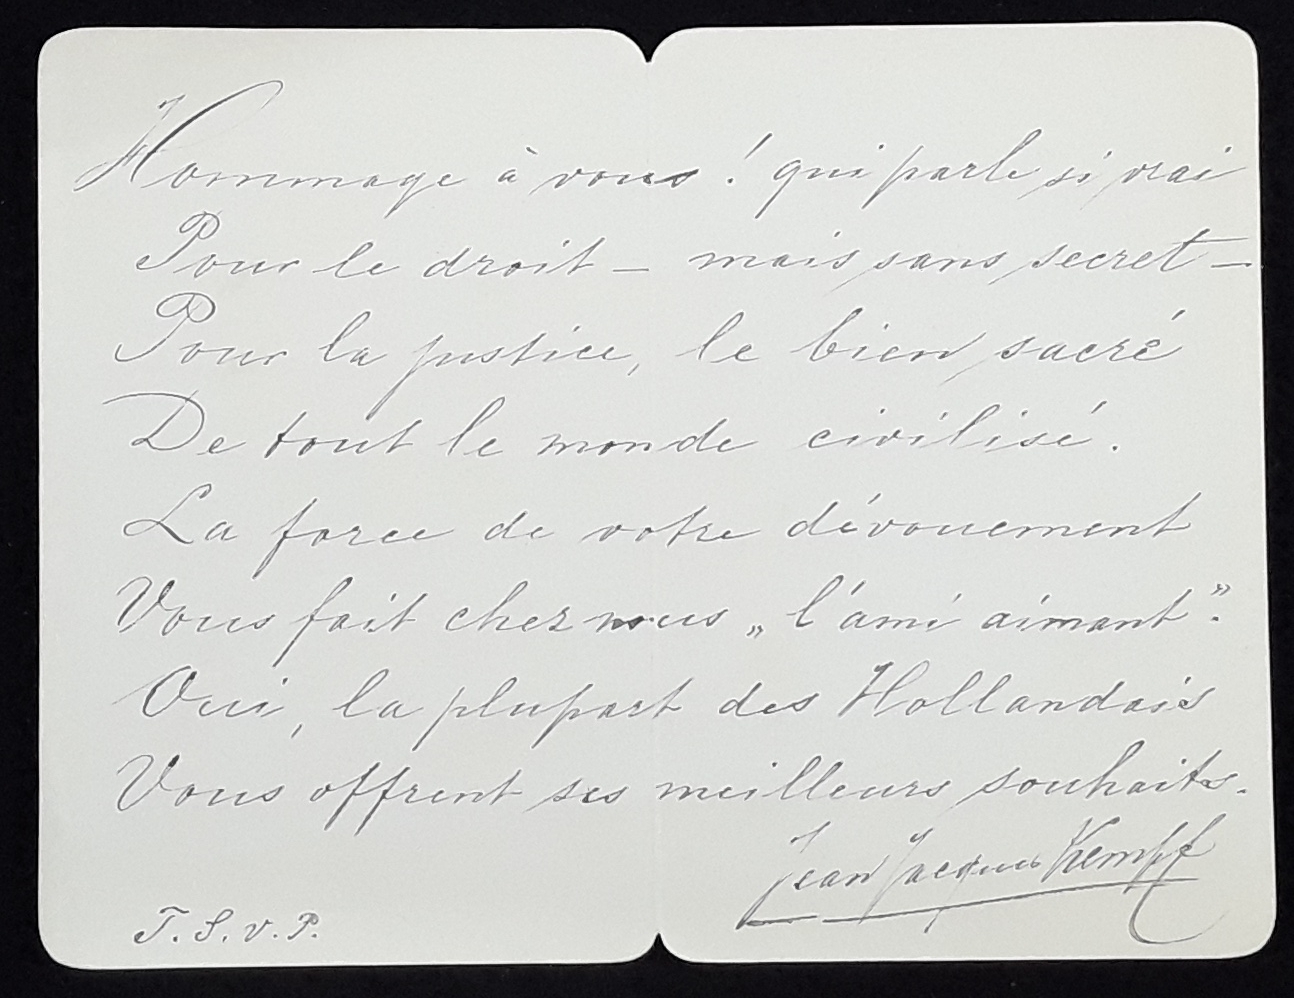 Hommage à vous! qui parle si vrai
Pour le droit — mais sans secret —
Pour la justice, le bien sacré
De tout le monde civilisé.
La force de votre dévouement
Vous fait chez nous „l'ami aimant".
Oui, la plupart des Hollandais
Vous offrent ses meilleurs souhaits.
Jean Jacques Kempff
T. S. V. P.